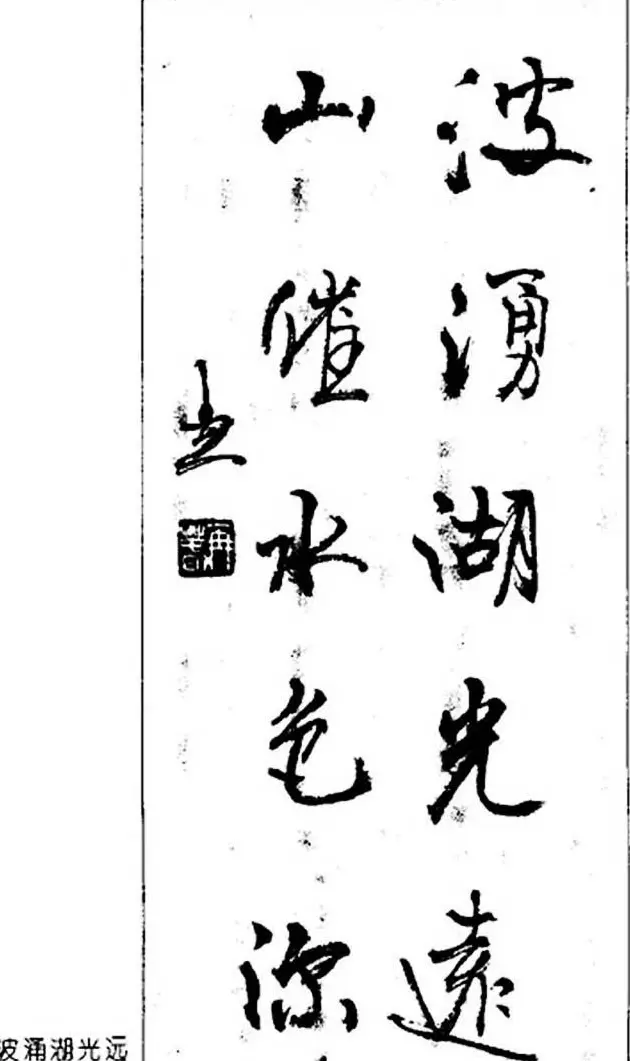 波湧湖光遠
山催水色深
波涌湖光远